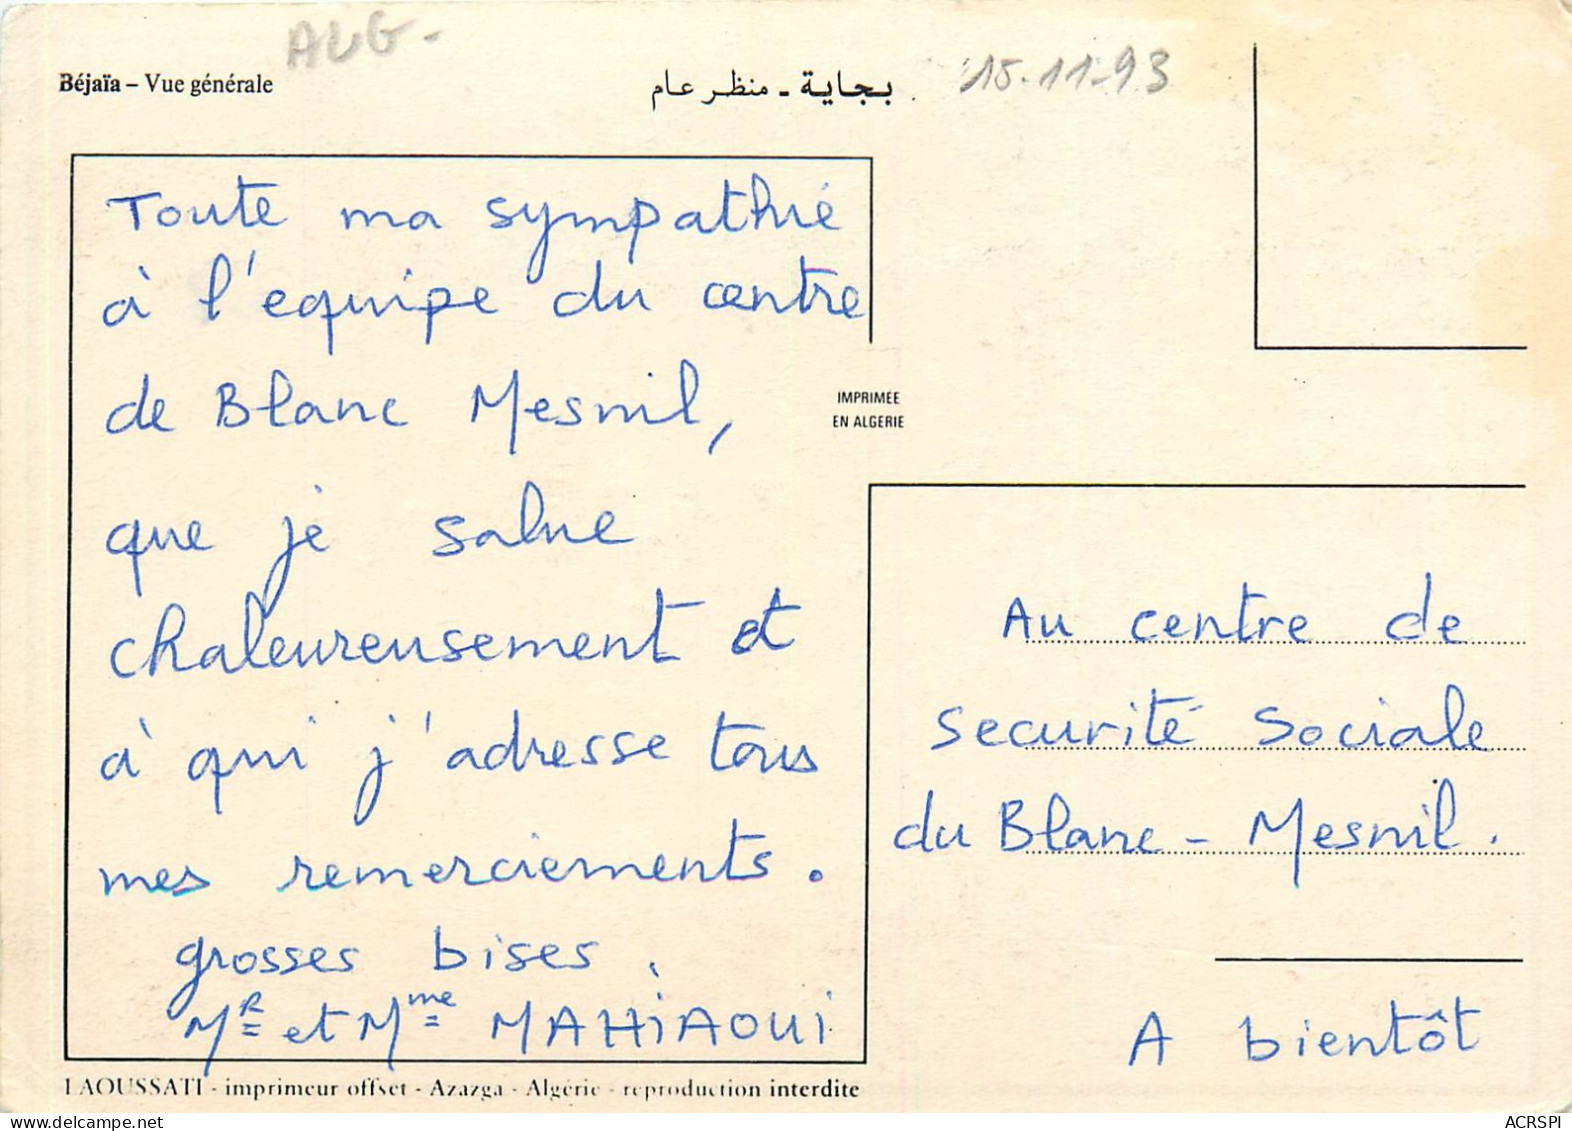 ALG-
Béjaïa – Vue générale
بجاية - منظر عام
15-11-93
Toute ma sympathie
à l'equipe du centre
de Blanc Mesnil,
que je salue
chaleureusement et
à qui j'adresse tous
mes remerciements.
grosses bises.
Mr et Mme MAHiAOUi
IMPRIMÉE
EN ALGERIE
Au centre de
securité sociale
du Blanc-Mesnil.
A bientôt
LAOUSSATI - imprimeur offset - Azazga - Algérie - reproduction interdite
ACRSPI